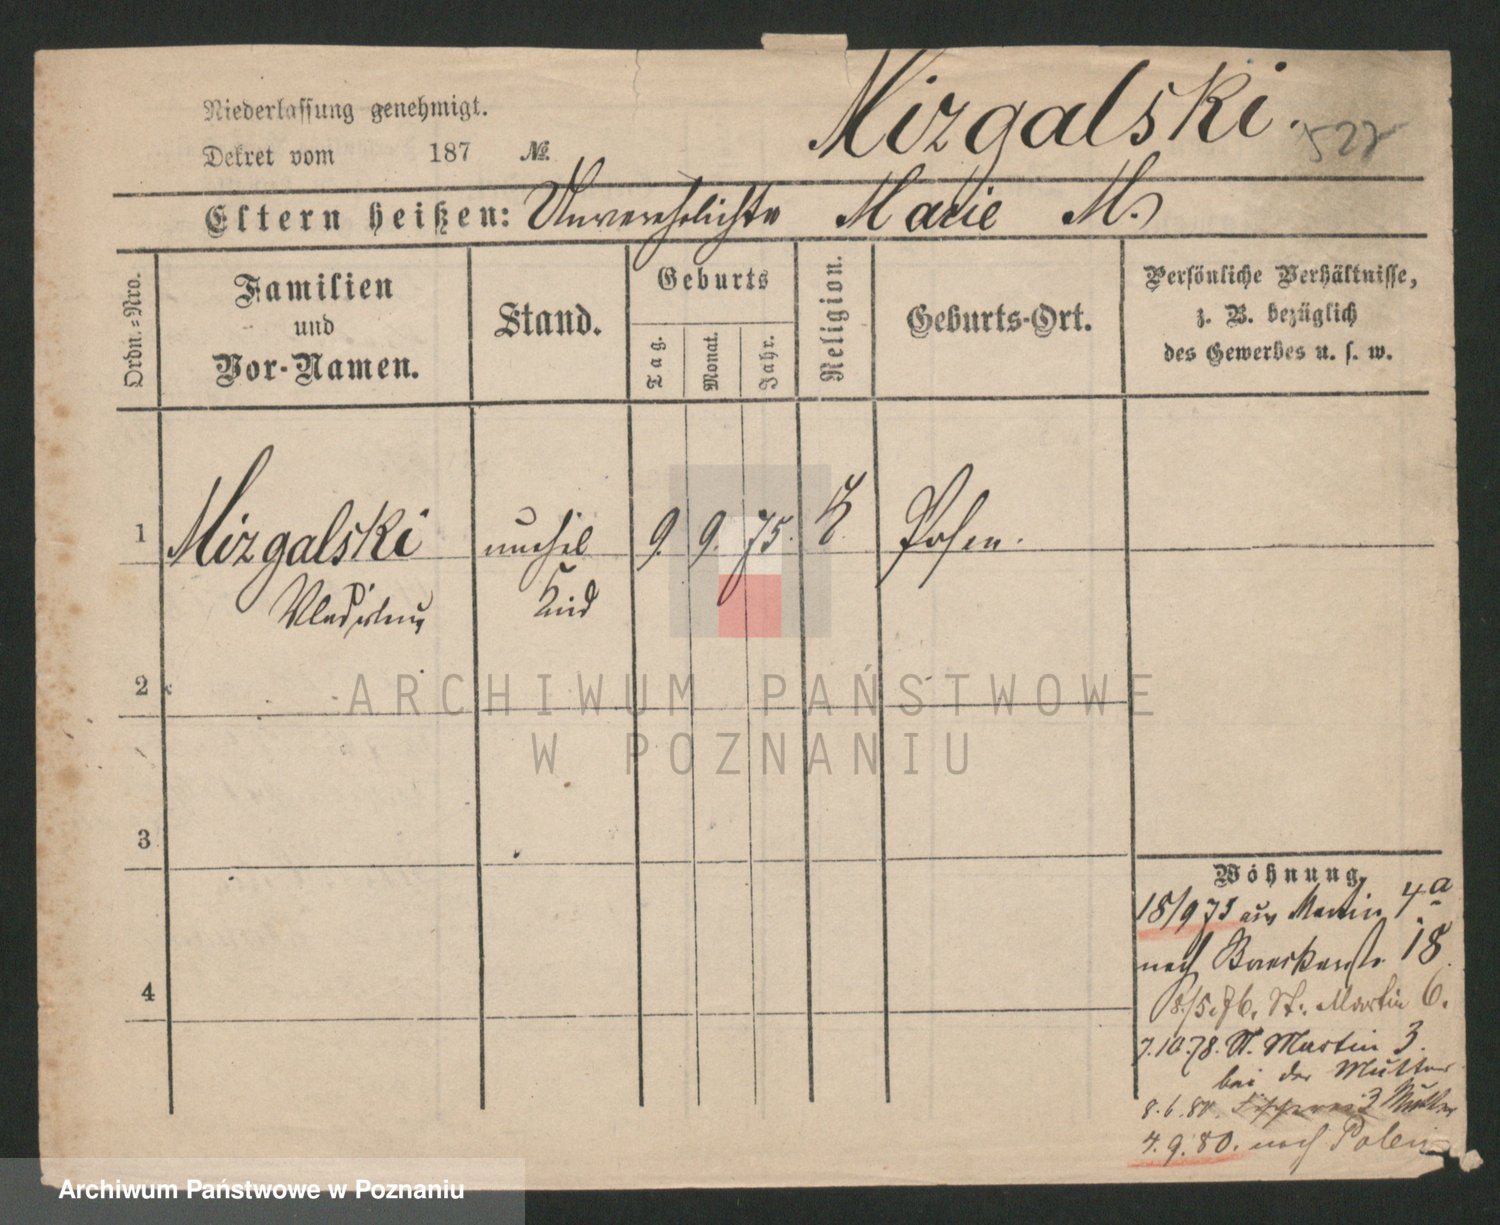 Niederlassung genehmigt.
Mizgalski.
Dekret vom 187 №.
Eltern heißen: Unverehelichte Marie M.
Ordn.=Nro.
Familien
und
Vor-Namen.
Stand.
Geburts
Tag.
Monat.
Jahr.
Religion.
Geburts-Ort.
Persönliche Verhältnisse,
z. B. bezüglich
des Gewerbes u. s. w.
1 Mizgalski unehel 9. 9. 75. K. Posen.
Kind
2
ARCHIWUM PAŃSTWOWE
W POZNANIU
3
Wohnung
18/9 75 aus Martin 4a
nach 18
8/5.76. St. Martin 6.
7.10.78. St. Martin 3.
bei der Mutter
8.6.80. 3 Mutter
4.9.80. nach Polen
4
Archiwum Państwowe w Poznaniu